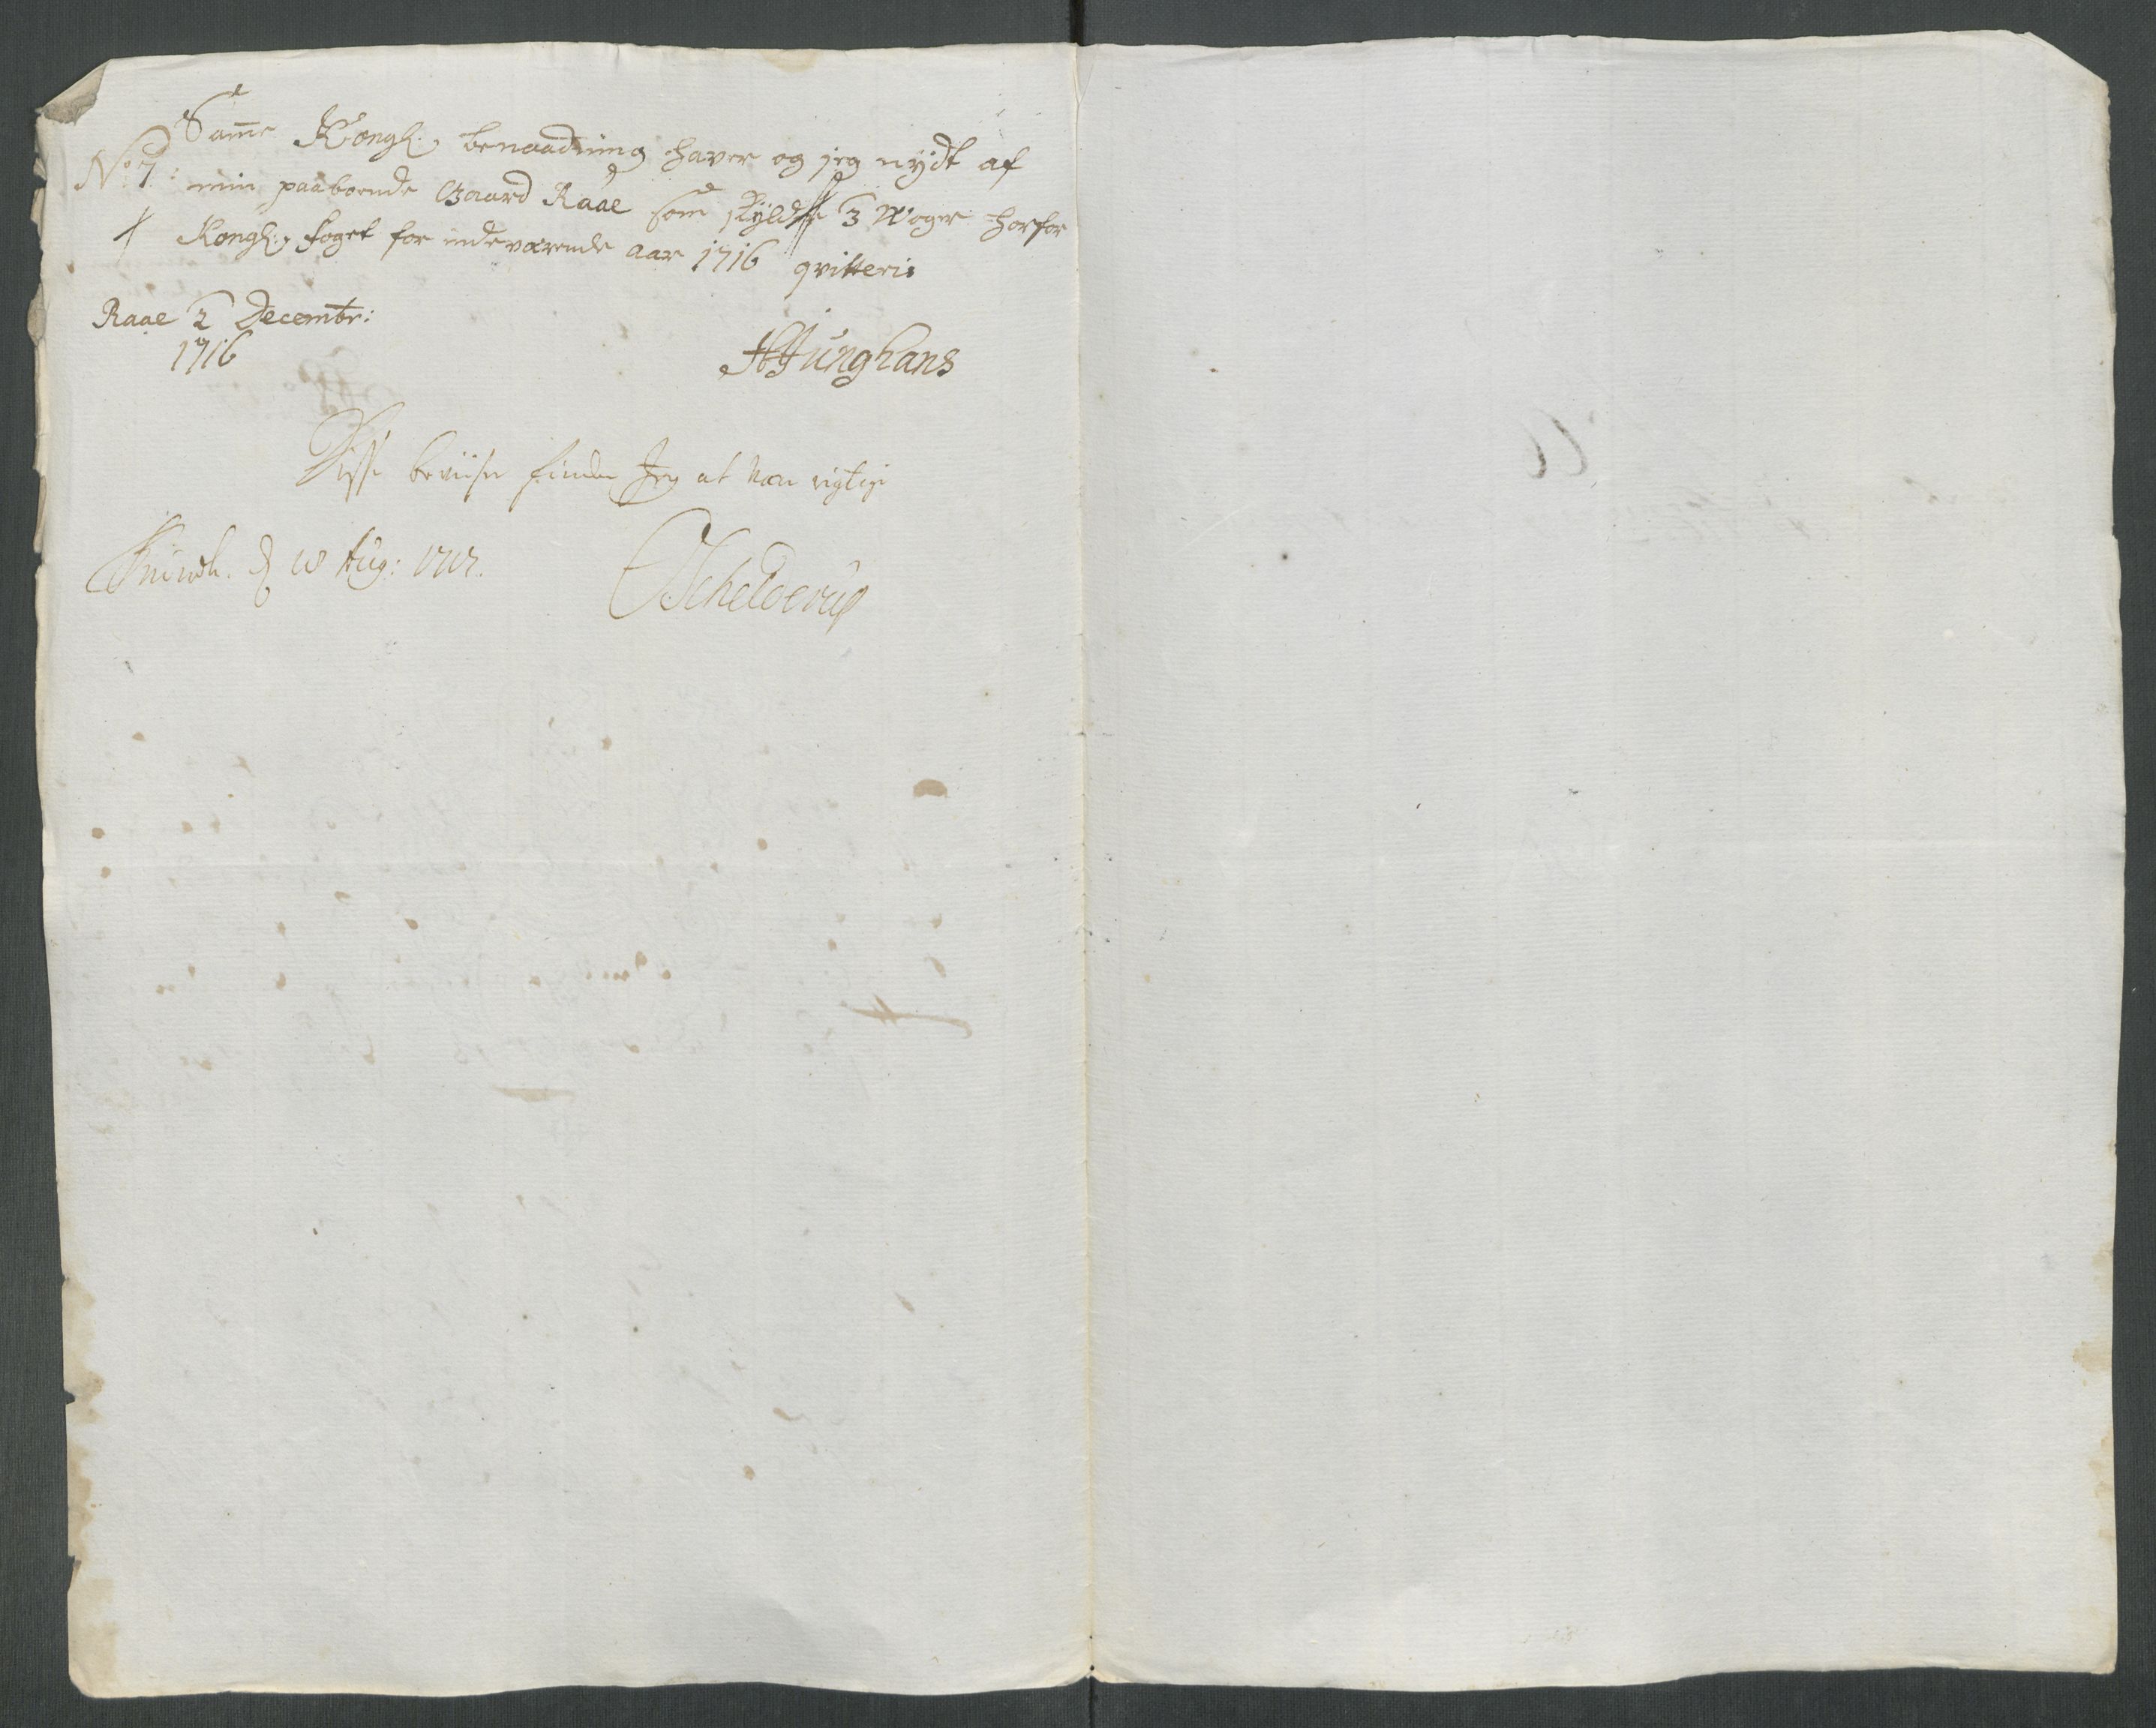 Sam̅e Kongl: benaadning haver og jeg nÿdt af
No 7: min paaboende Gaard Raae som skÿlder 3 Woger herfor
Kongl: foget for indeværende aar 1716 qvitteris
Raae 2 Decembr:
1716
HJunghans
Disse beviiser finder Jeg at vær rigtige
d 18 Aug: 1717.
Schelderup